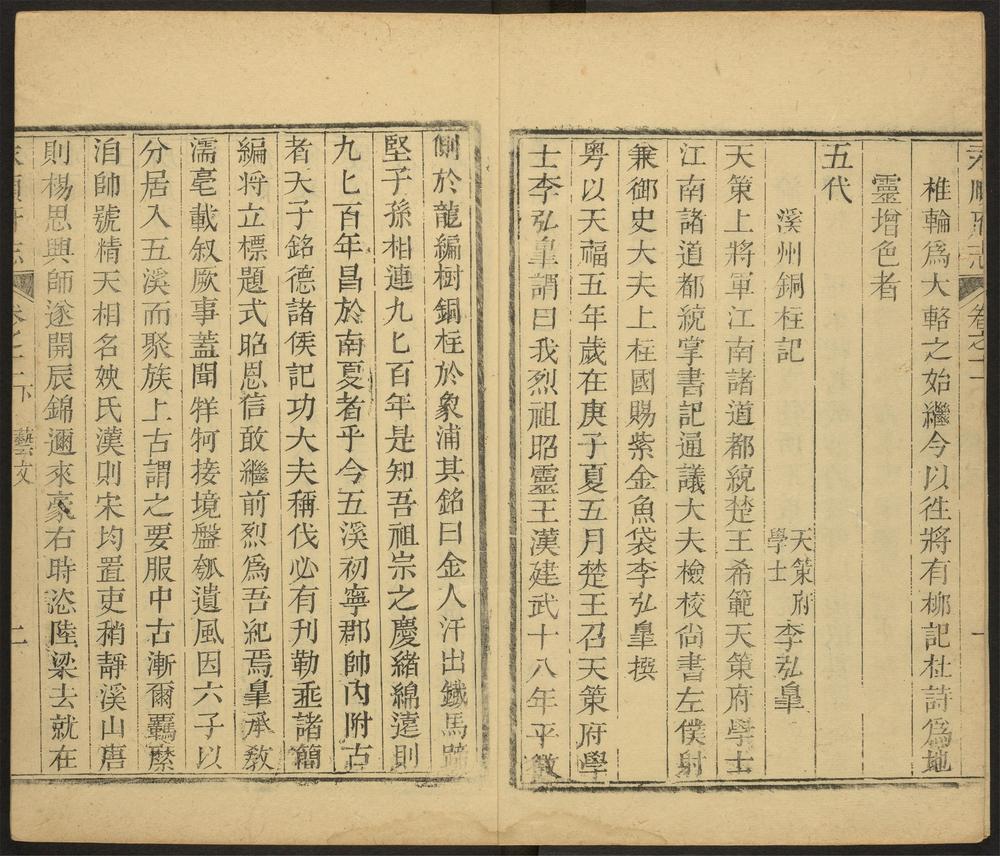 永順府志 卷之十
椎輪為大輅之始繼今以徃將有桞記杜詩為地
靈增色者
五代
溪州銅柱記 天策府學士 李弘臯
天策上將軍江南諸道都統楚王希範天策府學士
江南諸道都統掌書記通議大夫檢校尚書左僕射
兼御史大夫上柱國賜紫金魚袋李弘臯撰
粵以天福五年歲在庚子夏五月楚王召天策府學
士李弘臯謂曰我烈祖昭靈王漢建武十八年平徵
側於龍編樹銅柱於象浦其銘曰金人汗出鐵馬蹄
堅子孫相連九九百年是知吾祖宗之慶緒綿遠則
九九百年昌於南夏者乎今五溪初寧郡帥內附古
者天子銘德諸侯記功大夫稱伐必有刊勒垂諸簡
編將立標題式昭恩信敢繼前烈為吾紀焉臯承教
濡毫載叙厥事蓋聞牂牁接境盤瓠遺風因六子以
分居入五溪而聚族上古謂之要服中古漸爾羈縻
洎帥號精天相名姎氏漢則宋均置吏稍靜溪山唐
則楊思興師遂開辰錦邇來豪右時恣陸梁去就在
永順府志 卷之十下 藝文 二